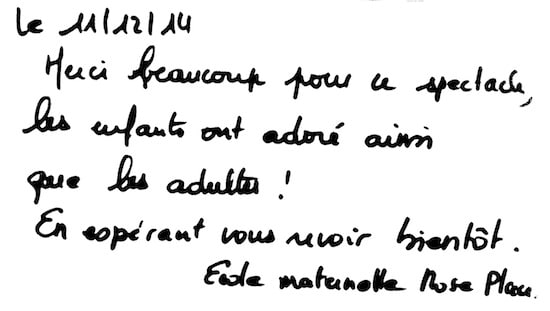 Le 11/12/14
Merci beaucoup pour ce spectacle,
les enfants ont adoré ainsi
que les adultes !
En espérant vous revoir bientôt.
Ecole maternelle Rose